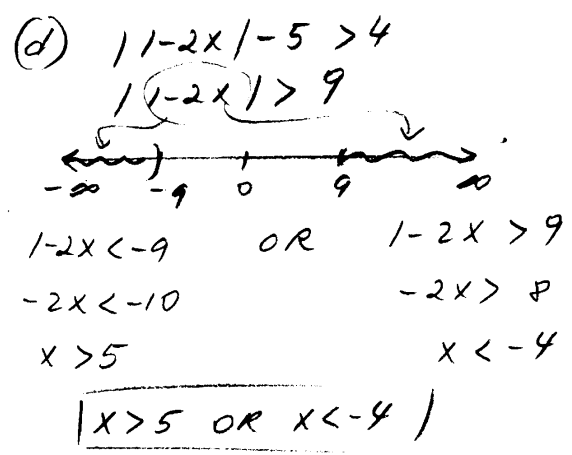 (d) |1-2x|-5 >4
|1-2x|> 9
-∞ -9 0 9 ∞
1-2x<-9 OR 1-2x >9
-2x<-10 -2x> 8
x >5 x < -4
x>5 OR x<-4